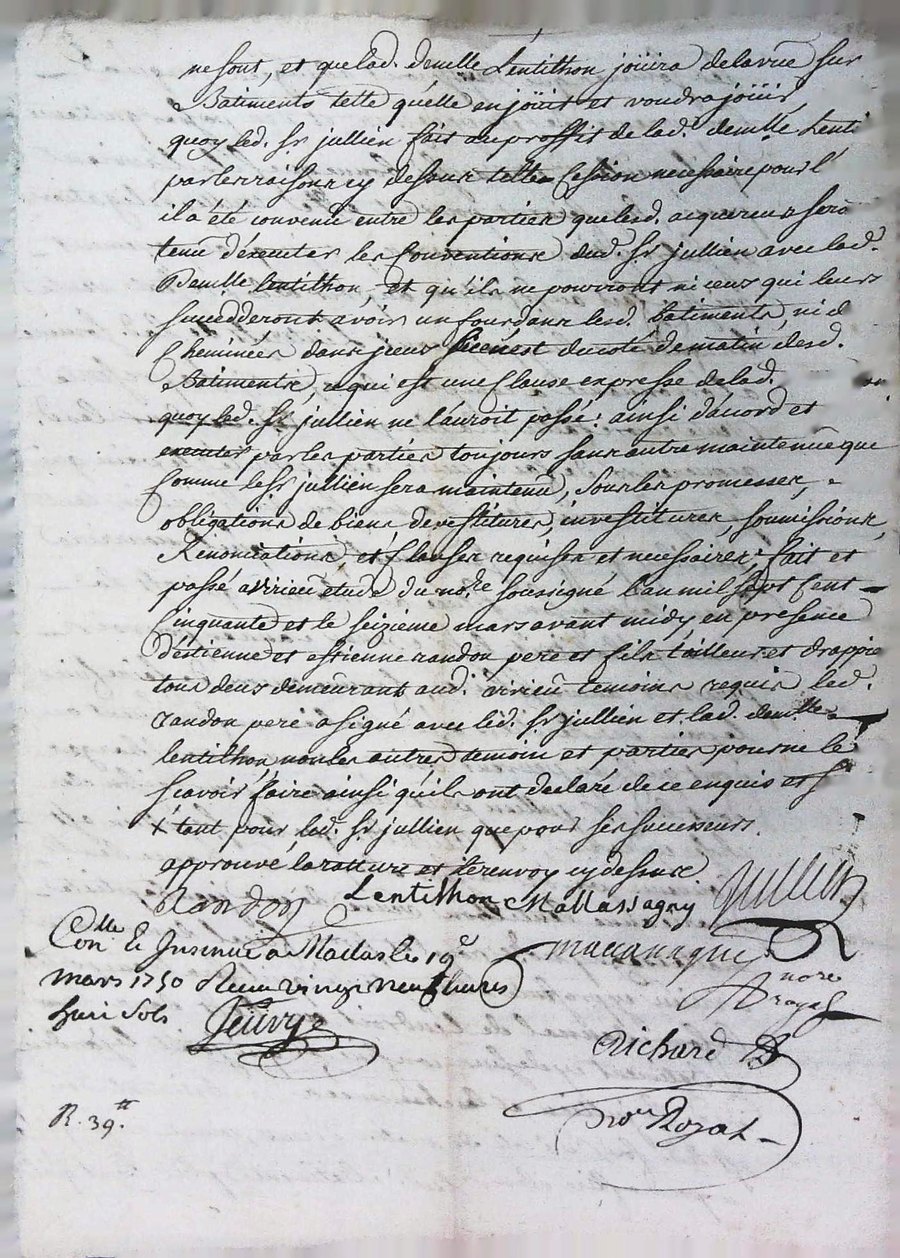 ne sont, et que lad. demlle Lentithon joüira de la vüe sur
Batiments telle qu'elle en joüit et voudra joüir
quoy led. Sr jullien fait au proffit de lad.e demlle Lenti
par les raisons cy dessus telle Cession necessaire pour l'
il a été convenu entre les parties que lesd. acquereurs sero
tenu d'executer les Conventions dud. Sr jullien avec lad.
Demlle lentithon, et qu'ils ne pourront ni ceux qui leurs
succedderont avoir un four dans lesd. batiments, ni d
Cheminées dans jceux du coté de matin desd.
Batiments, ce qui est une Clause expresse de lad.
quoy led. Sr jullien ne l'auroit passé: ainsi d'acord et
executer par les parties toujours sans autre maintenüe que
Comme le Sr jullien sera maintenu, Sous les promesses,
obligations de biens devestitures, investitures, soumissions,
Rénonciations et Clauses requises et necessaires; fait et
passé a virieu etude du nore soussigné l'an mil sept Cent
Cinquante et le seizieme mars avant midy en presence
D'estienne et estienne randon pere et fils tailleur et drappie
tous deux demeurant aud. virieu temoins requis led.
randon pere a signé avec led. Sr jullien et lad. demlle
lentithon non les autres temoin et parties pour ne le
scavoir faire ainsi qu'ils ont declaré de ce enquis et S
X tant pour led. Sr jullien que pour ses successeurs.
approuvé la ratture et le renvoy cy dessus.
Randon Lentithon Mallassagny Jullien
Conlle & Insinué a Mallas le 19e
mars 1750 Receu vingt neuf livres
huit Sols
nore
royal
Richard
nore Royal
R. 39.tt